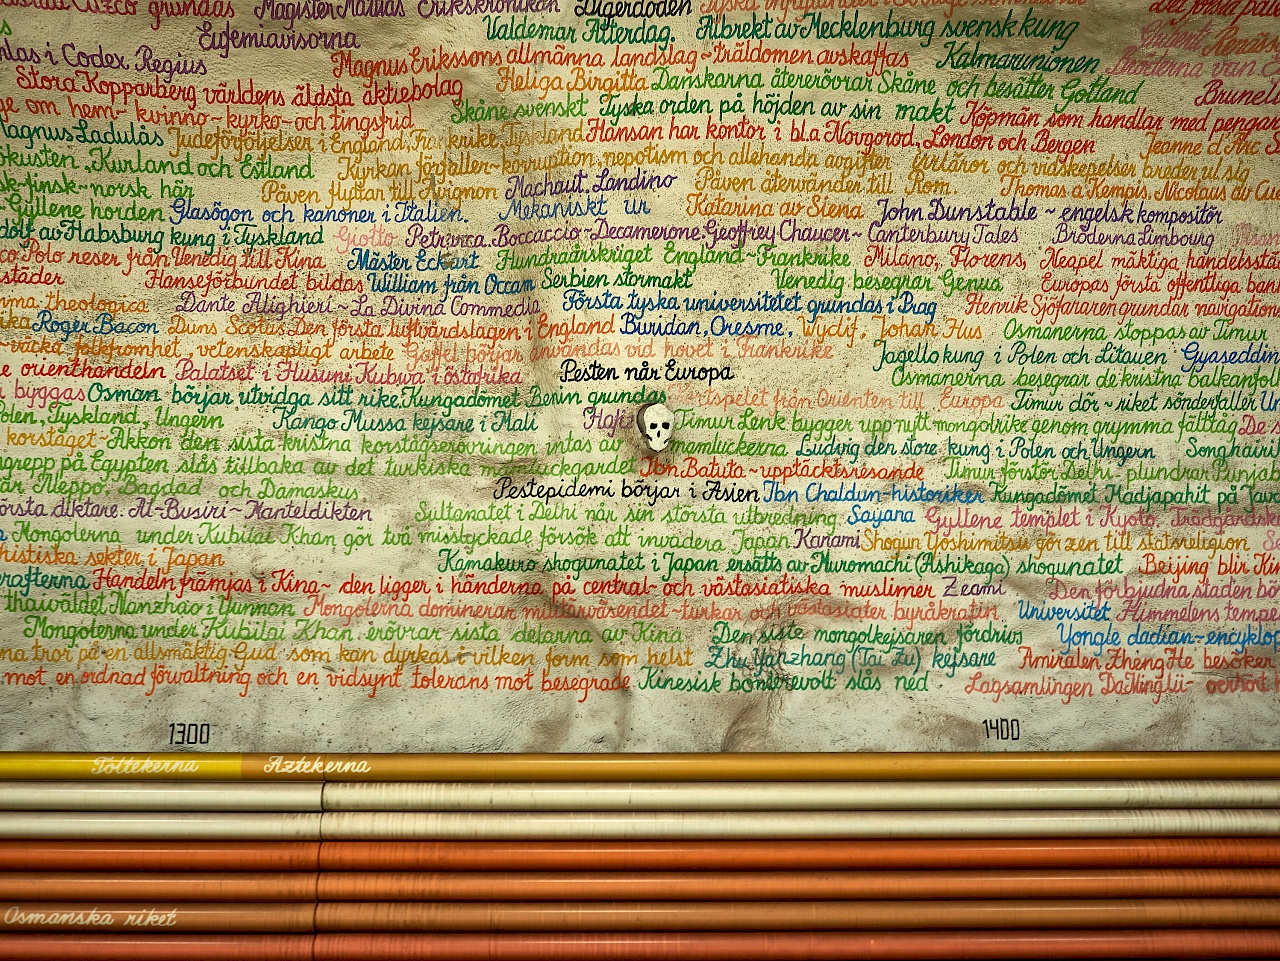 Cuzco grundas Magister Mattias Erikskrönikan Digerdöden
Eufemiavisorna Valdemar Atterdag. Albrekt av Mecklenburg svensk kung
i Codex Regius Magnus Erikssons allmänna landslag~träldomen avskaffas Kalmarunionen Bröderna van
Stora Kopparberg världens äldsta aktiebolag Heliga Birgitta Danskarna återerövrar Skåne och besätter Gotland
om hem- kvinno- kyrko- och tingsfrid Skåne svenskt Tyska orden på höjden av sin makt Köpmän som handlar med pengar
Magnus Ladulås Judeförföljelser i England, Frankrike, Tyskland Hansan har kontor i bl.a Novgorod, London och Bergen Jeanne d'Arc
Kurland och Estland Kyrkan förfaller~korruption, nepotism och allehanda avgifter Irrläror och vidskepelser breder ut sig
finsk~norsk här Påven flyttar till Avignon Machaut. Landino Påven återvänder till Rom. Thomas a Kempis. Nicolaus av
Gyllene horden Glasögon och kanoner i Italien. Mekaniskt ur Katarina av Siena John Dunstable ~ engelsk kompositör
av Habsburg kung i Tyskland Giotto Petrarca. Boccaccio~Decamerone Geoffrey Chaucer~Canterbury Tales Bröderna Limbourg
Polo reser från Venedig till Kina Mäster Eckart Hundraårskriget England~Frankrike Milano, Florens, Neapel mäktiga
städer Hanseförbundet bildas William från Occam Serbien stormakt Venedig besegrar Genua Europas första offentliga
theologica Dante Alighieri~La Divina Commedia Första tyska universitetet grundas i Prag Henrik Sjöfararen grundar
Roger Bacon Duns Scotus Den första luftvärdslagen i England Buridan, Oresme, Wyclif, Johan Hus Osmanerna stoppas av Timur
folkfromhet, vetenskapligt arbete Gaffel börjar användas vid hovet i Frankrike Jagello kung i Polen och Litauen
orienthandeln Palatset i Husuni Kubwa i östafrika Pesten når Europa Osmanerna besegrar de kristna
byggas Osman börjar utvidga sitt rike Kungadömet Benin grundas från Orienten till Europa Timur dör~riket sönderfaller
Polen, Tyskland, Ungern Kango Mussa kejsare i Mali Timur Lenk bygger upp nytt mongolrike genom grymma fälttåg
korståget~Akkon den sista kristna korstågserövringen intas av mamluckerna Ludvig den store kung i Polen och Ungern
på Egypten slås tillbaka av det turkiska mamluckgardet Ibn Batuta~upptäcktsresande Timur förstör Delhi, plundrar Punjab
Aleppo, Bagdad och Damaskus Pestepidemi börjar i Asien Ibn Chaldun~historiker Kungadömet Madjapahit på
diktare. Al-Busiri~Manteldikten Sultanatet i Delhi når sin största utbredning Sayana Gyllene templet i Kyoto.
Mongolerna under Kubilai Khan gör två misslyckade försök att invadera Japan Kanami Shogun Yoshimitsu gör zen till statsreligion
sekter i Japan Kamakuro shogunatet i Japan ersätts av Muromachi (Ashikaga) shogunatet Beijing blir
Handeln främjas i Kina~den ligger i händerna på central- och västasiatiska muslimer Zeami Den förbjudna staden
thaiväldet Nanzhao i Yunnan Mongolerna dominerar militärväsendet~turkar och västasiater byråkratin Universitet Himmelens
Mongolerna under Kubilai Khan erövrar sista delarna av Kina Den siste mongolkejsaren fördrivs Yongle dadian~
tror på en allsmäktig Gud som kan dyrkas i vilken form som helst Zhu Yanzhang (Tai Zu) kejsare Amiralen Zheng He besöker
mot en ordnad förvaltning och en vidsynt tolerans mot besegrade Kinesisk bonderevolt slås ned Lagsamlingen Da Ming lü~
1300 1400
Toltekerna Aztekerna
Osmanska riket